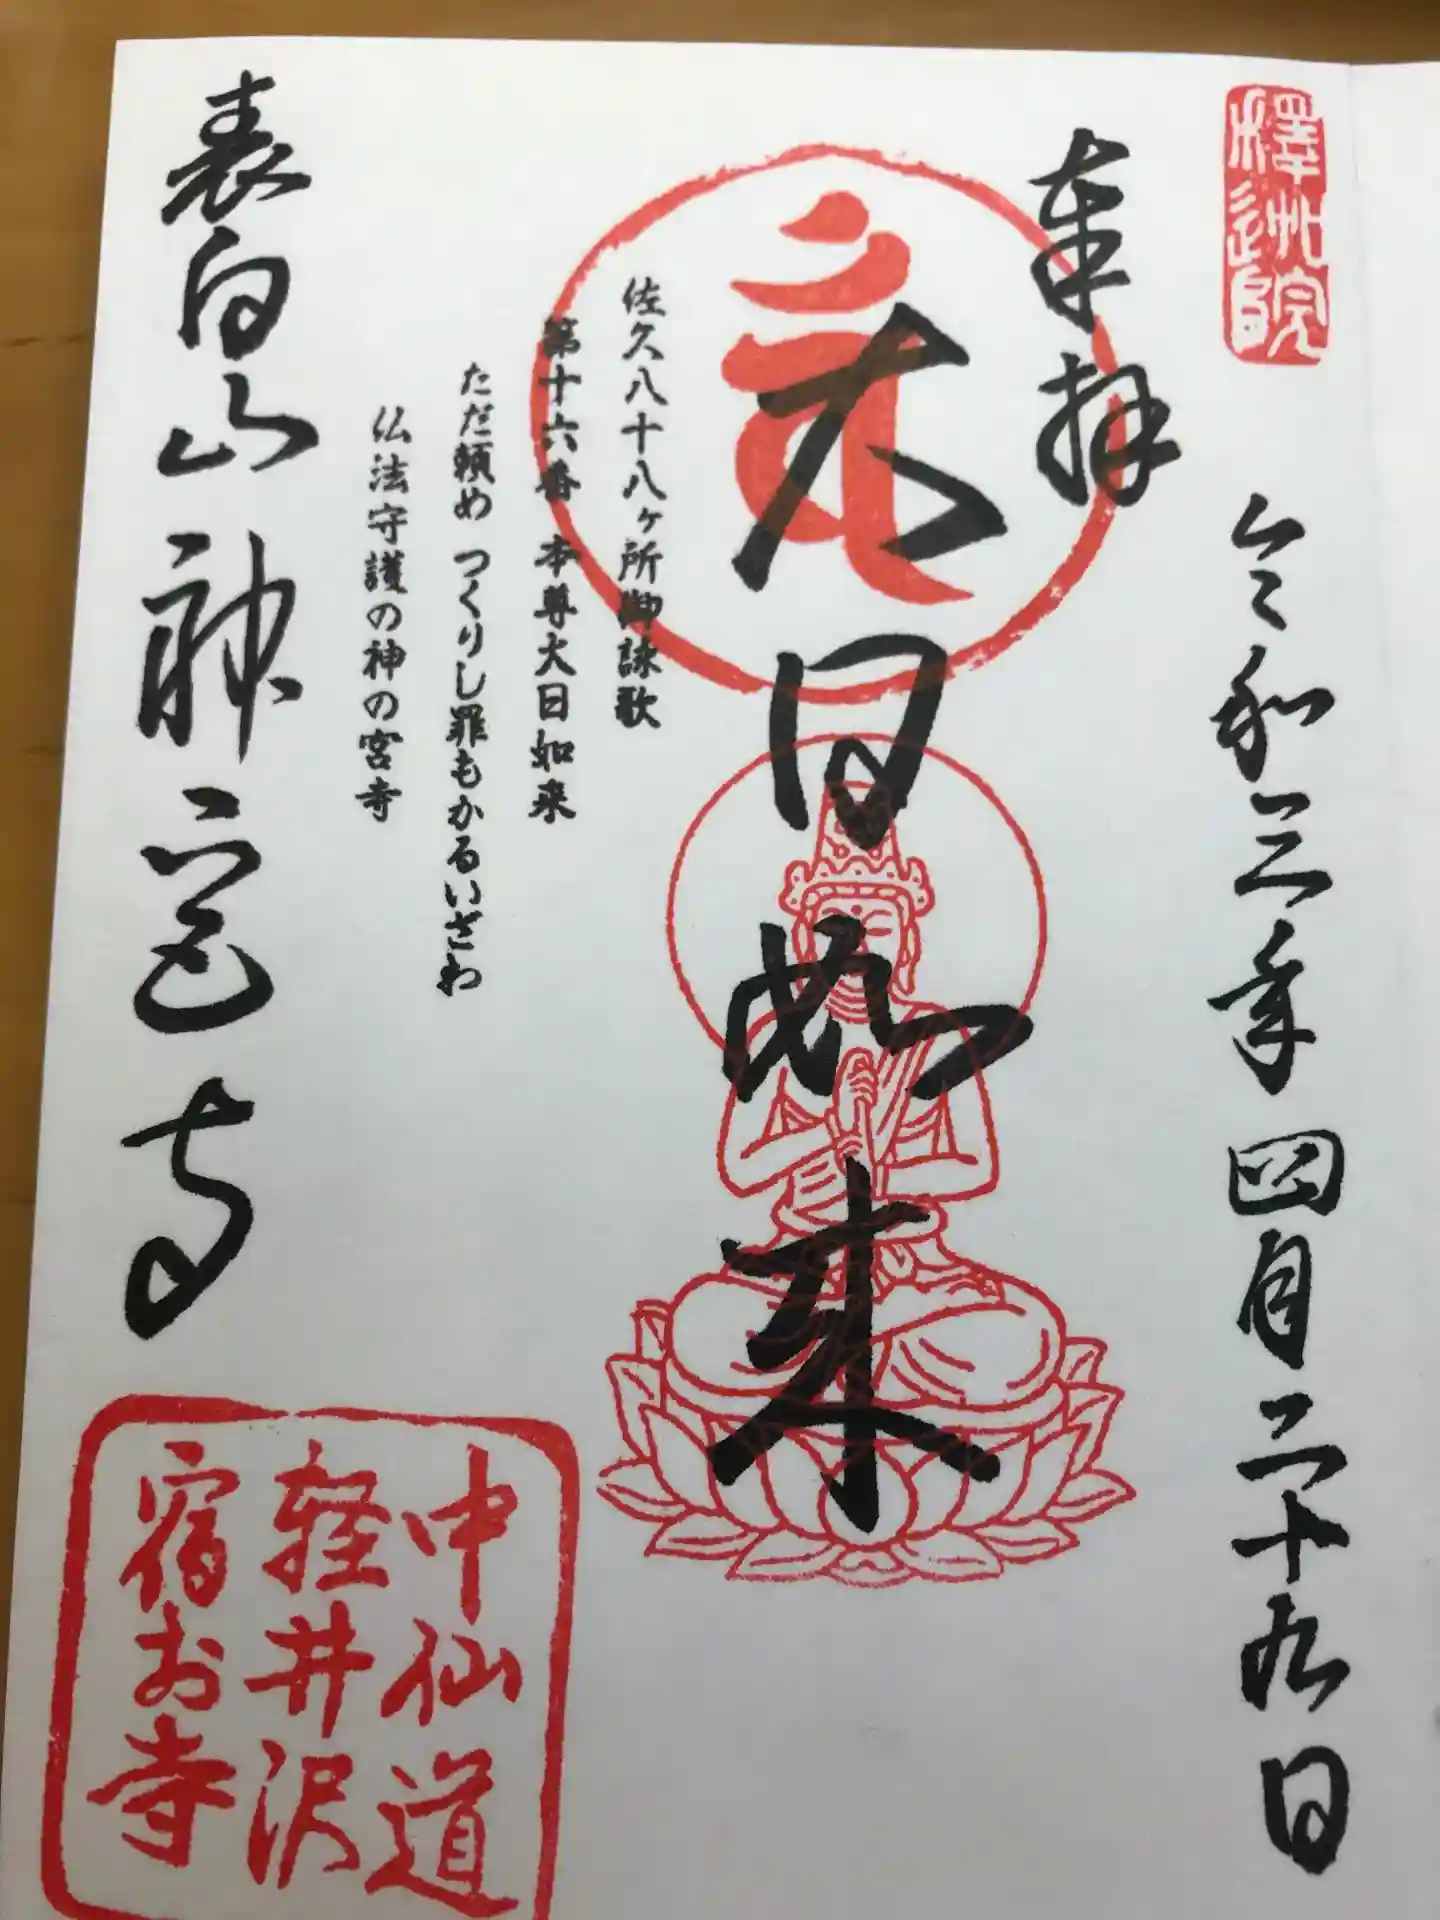 奉拝
令和三年四月二十九日
大日如来
佐久八十八ヶ所御詠歌
第十六番 本尊大日如来
ただ頼め つくりし罪もかるいざわ
仏法守護の神の宮寺
表白山神宮寺
中仙道
軽井沢
宿お寺